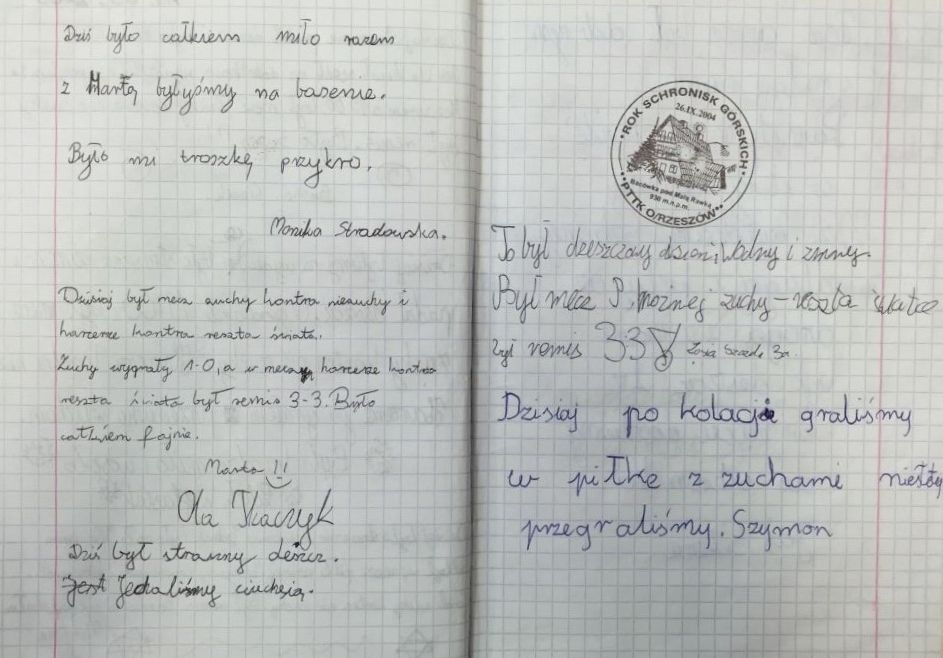 Dziś było całkiem miło razem
z Martą byłyśmy na basenie.
Było mi troszkę przykro.
Monika Stradowska.
Dzisiaj był mecz zuchy kontra niezuchy i
harcerze kontra reszta świata.
Zuchy wygrały 1-0, a w meczu harcerze kontra
reszta świata był remis 3-3. Było
całkiem fajnie.
Marta !!
Ola Tkaczyk
Dziś był straszny deszcz.
Jechaliśmy ciuchcią.
ROK SCHRONISK GÓRSKICH
26.IX.2004
Bacówka pod Małą Rawką
930 m.n.p.m.
PTTK O/RZESZÓW
To był deszczowy dzień, i zimny.
Był mecz P. nożnej zuchy - reszta świata
był remis 3:3 Zosia 3a.
Dzisiaj po kolacji graliśmy
w piłkę z zuchami niestety
przegraliśmy. Szymon